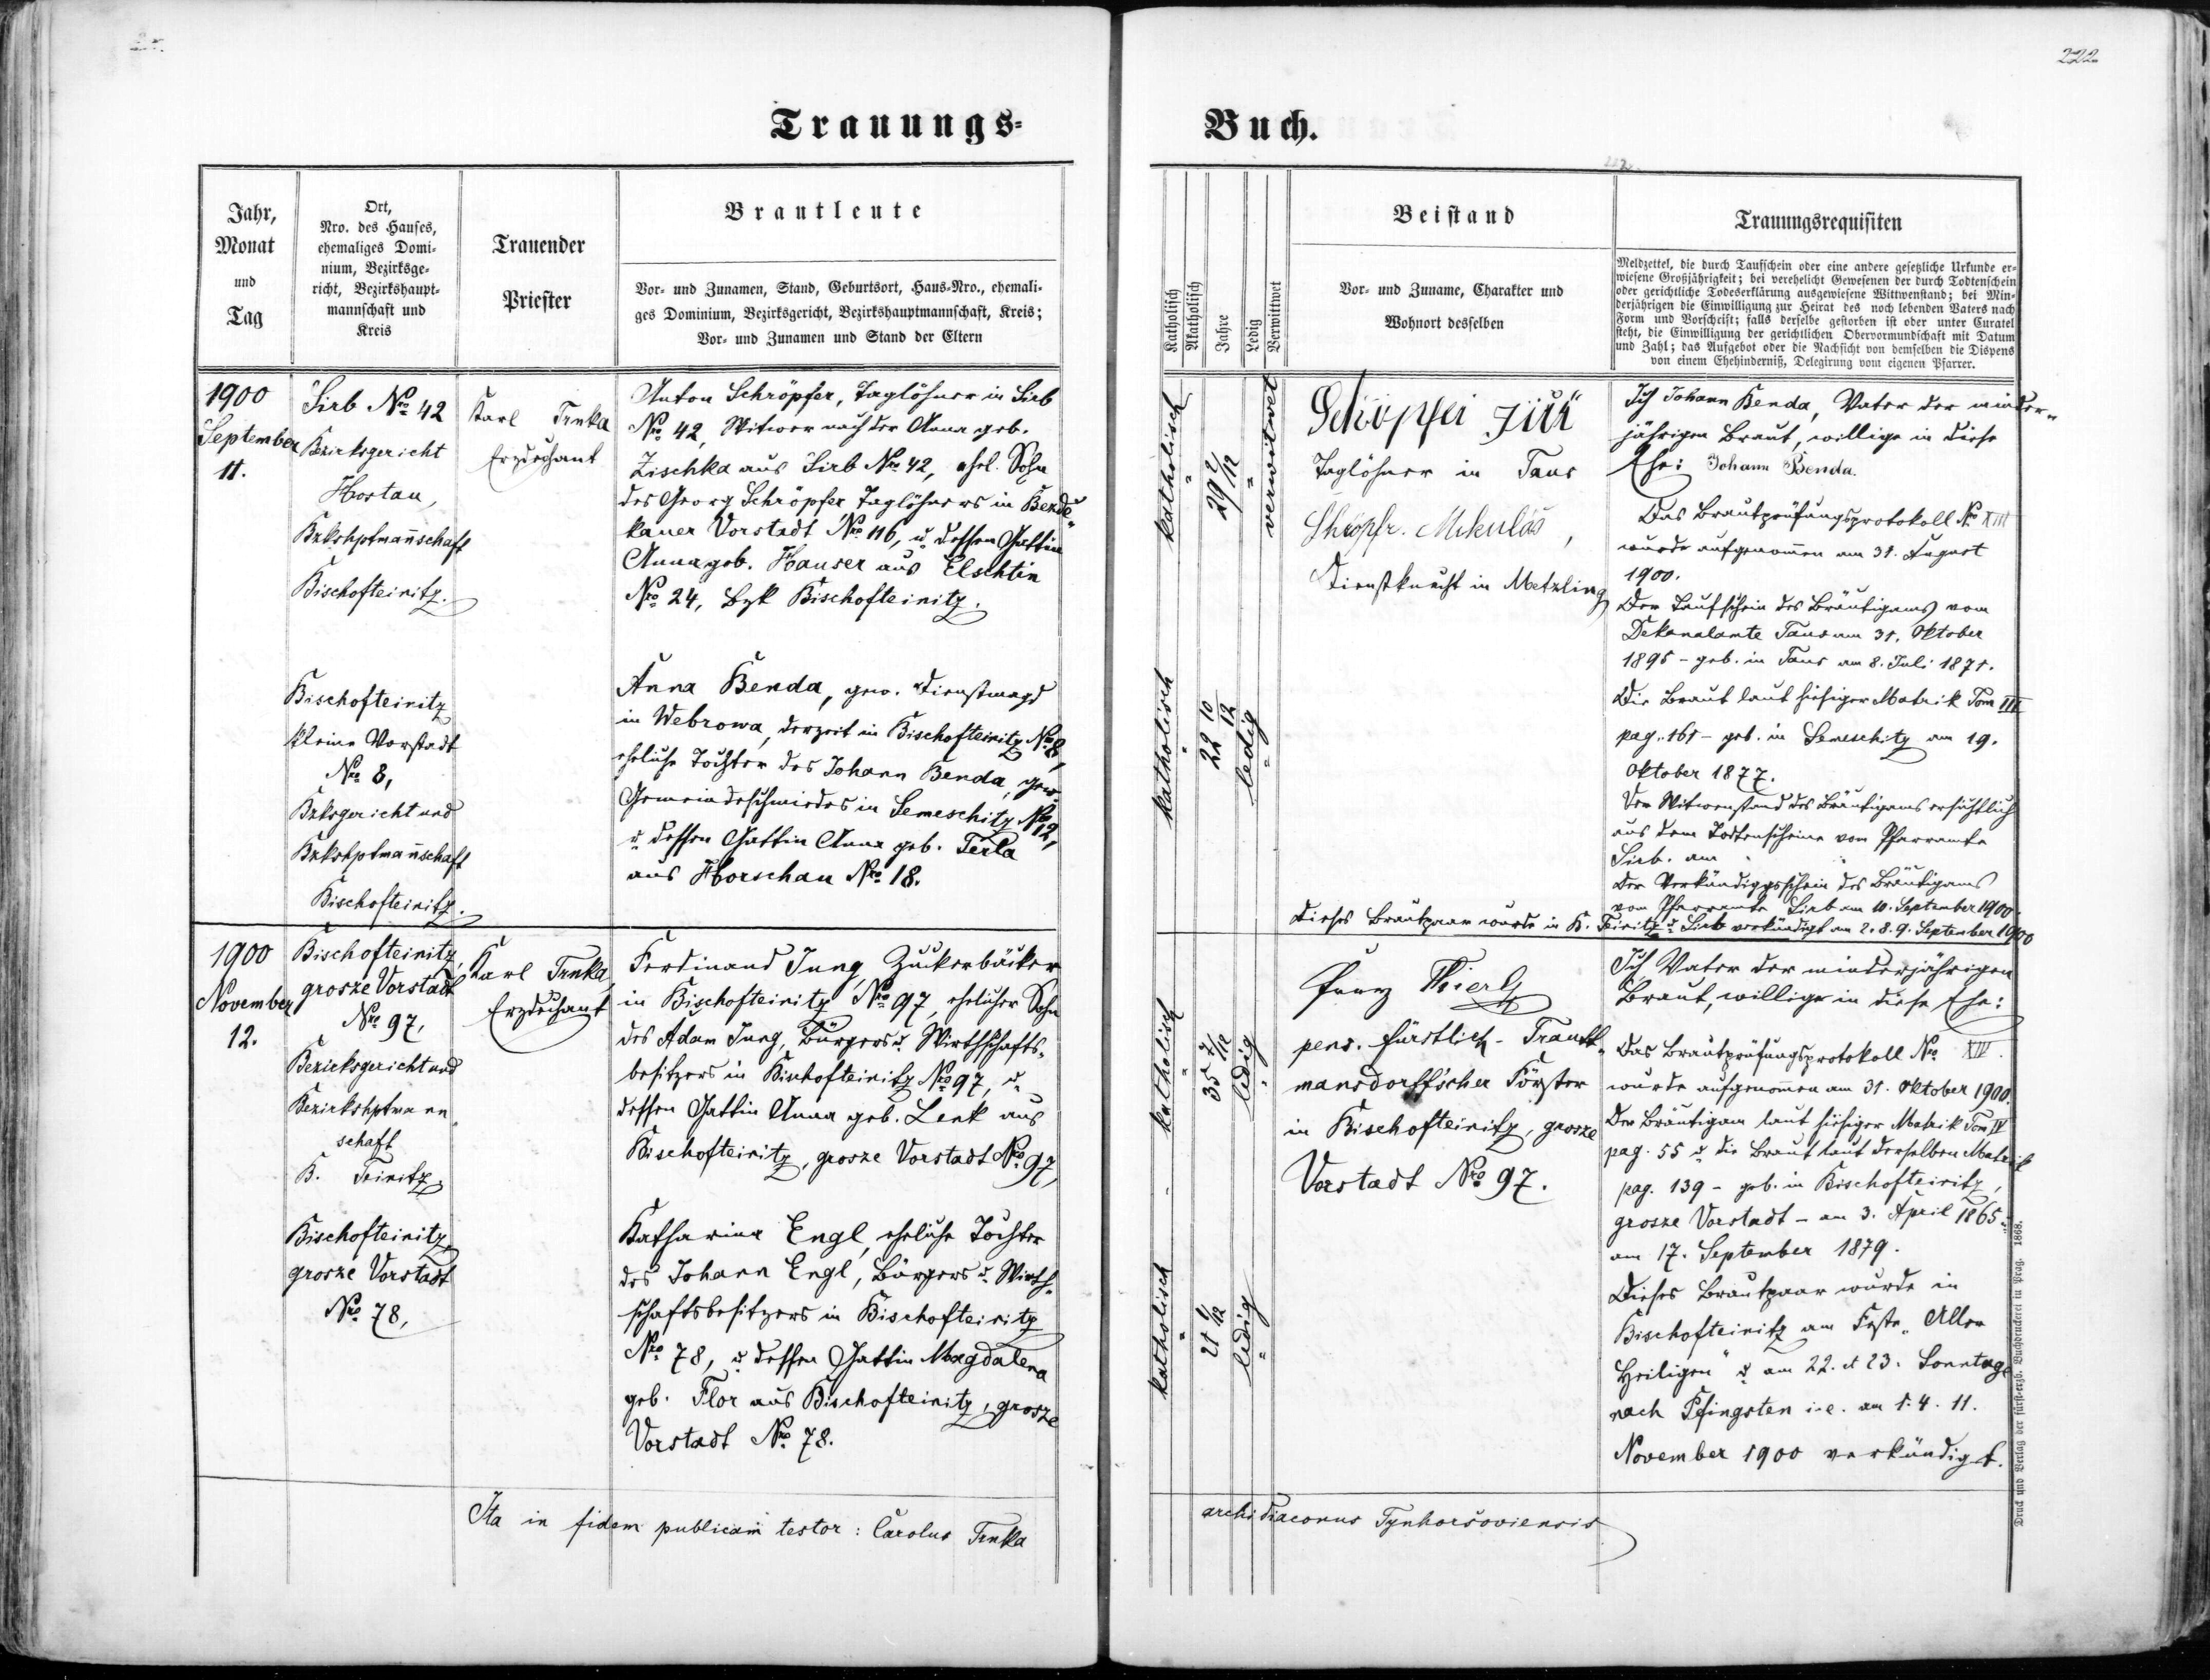 222
Trauungs=
Buch.
Jahr,
Monat
und
Tag
Ort,
Nro. des Hauses,
ehemaliges Domi-
nium, Bezirksge-
richt, Bezirkshaupt-
mannschaft und
Kreis
Trauender
Priester
Brautleute
Vor- und Zunamen, Stand, Geburtsort, Haus-Nro., ehemali-
ges Dominium, Bezirksgericht, Bezirkshauptmannschaft, Kreis;
Vor- und Zunamen und Stand der Eltern
Katholisch
Akatholisch
Jahre
Ledig
Verwittwet
Beistand
Vor- und Zuname, Charakter und
Wohnort desselben
Trauungsrequisiten
Meldzettel, die durch Taufschein oder eine andere gesetzliche Urkunde er-
wiesene Großjährigkeit; bei verehelicht Gewesenen der durch Todtenschein
oder gerichtliche Todeserklärung ausgewiesene Wittwenstand; bei Min-
derjährigen die Einwilligung zur Heirat des noch lebenden Vaters nach
Form und Vorschrift; falls derselbe gestorben ist oder unter Curatel
steht, die Einwilligung der gerichtlichen Obervormundschaft mit Datum
und Zahl; das Aufgebot oder die Nachsicht von demselben die Dispens
von einem Ehehinderniß, Delegirung vom eigenen Pfarrer.
1900
September
11.
Sirb Nro 42
Bezirksgericht
Hostau,
Bzkshptmannschaft
Bischofteinitz.
Karl Trnka
Erzdechant
Anton Schröpfer, Taglöhner in Sirb
Nro 42, Witwer nach der Anna geb.
Zischka aus Sirb Nro 42, ehel. Sohn
des Georg Schröpfer Taglöhners in Bezde-
kauer Vorstadt Nro 116, u. dessen Gattin
Anna geb. Hauser aus Elschtin
Nro 24, Bzk Bischofteinitz.
katholisch
29 2/12
verwitwet
Taglöhner in Taus
Mikuláš,
Dienstknecht in Metzling
Ich Johann Benda, Vater der minder-
jährigen Braut, willige in diese
Ehe: Johann Benda.
Das Brautprüfungsprotokoll Nro XIII
wurde aufgenommen am 31. August
1900.
Der Taufschein des Bräutigams vom
Dekanalamte Taus am 31. Oktober
1895 - geb. in Taus am 8. Juli 1871.
Die Braut laut hiesiger Matrik Tom III
pag. 161 - geb. in Semeschitz am 19.
Oktober 1877.
Der Witwenstand des Bräutigams ersichtlich
aus dem Todtenscheine vom Pfarramte
Sirb. am
Der Verkündigsschein des Bräutigams
vom Pfarramte Sirb am 10. September 1900.
Dieses Brautpaar wurde in B. Teinitz u. Sirb verkündigt am 2. 8. 9. September 1900
Bischofteinitz
kleine Vorstadt
Nro 8,
Bzksgericht und
Bzkshptmannschaft
Bischofteinitz.
Anna Benda, gew. Dienstmagd
in Webrowa, derzeit in Bischofteinitz Nro 8,
eheliche Tochter des Johann Benda, gew.
Gemeindeschmiedes in Semeschitz Nro 12,
u. dessen Gattin Anna geb. Terla
aus Horschau Nro 18.
katholisch
22 10/12
ledig
1900
November
12.
Bischofteinitz,
grosze Vorstadt
Nro 97,
Bezirksgericht und
Bezirkshptmann
schaft
B. Teinitz.
Karl Trnka,
Erzdechant
Ferdinand Jung, Zuckerbäcker
in Bischofteinitz Nro 97, ehelicher Sohn
des Adam Jung, Bürgers u. Wirthschafts-
besitzers in Bischofteinitz Nro 97, u.
dessen Gattin Anna geb. Lenk aus
Bischofteinitz, grosze Vorstadt Nro 97,
katholisch
35 7/12
ledig
Franz Thierl
pens. fürstlich-Trautt-
mansdorff'scher Förster
in Bischofteinitz, grosze
Vorstadt Nro 97.
Ich, Vater der minderjährigen
Braut, willige in diese Ehe:
Das Brautprüfungsprotokoll Nro XIV.
wurde aufgenommen am 31. Oktober 1900.
Der Bräutigam laut hiesiger Matrik Tom IV
pag. 55 u. die Braut laut derselben Matrik
pag. 139 - geb. in Bischofteinitz,
grosze Vorstadt - am 3. April 1865 -
am 17. September 1879.
Dieses Brautpaar wurde in
Bischofteinitz am Feste „Aller
Heiligen" u. am 22. et 23. Sonntage
nach Pfingsten i. e. am 1. 4. 11.
November 1900 verkündigt.
Bischofteinitz,
grosze Vorstadt
Nro 78,
Katharina Engl, eheliche Tochter
des Johann Engl, Bürgers u. Wirth-
schaftsbesitzers in Bischofteinitz
Nro 78, u. dessen Gattin Magdalena
geb. Flor aus Bischofteinitz, grosze
Vorstadt Nro 78.
katholisch
21 1/12
ledig
Ita in fidem publicam testor: Carolus Trnka
archidiaconus Tynhoršoviensis
Druck und Verlag der fürst-erzb. Buchdruckerei in Prag. 1868.